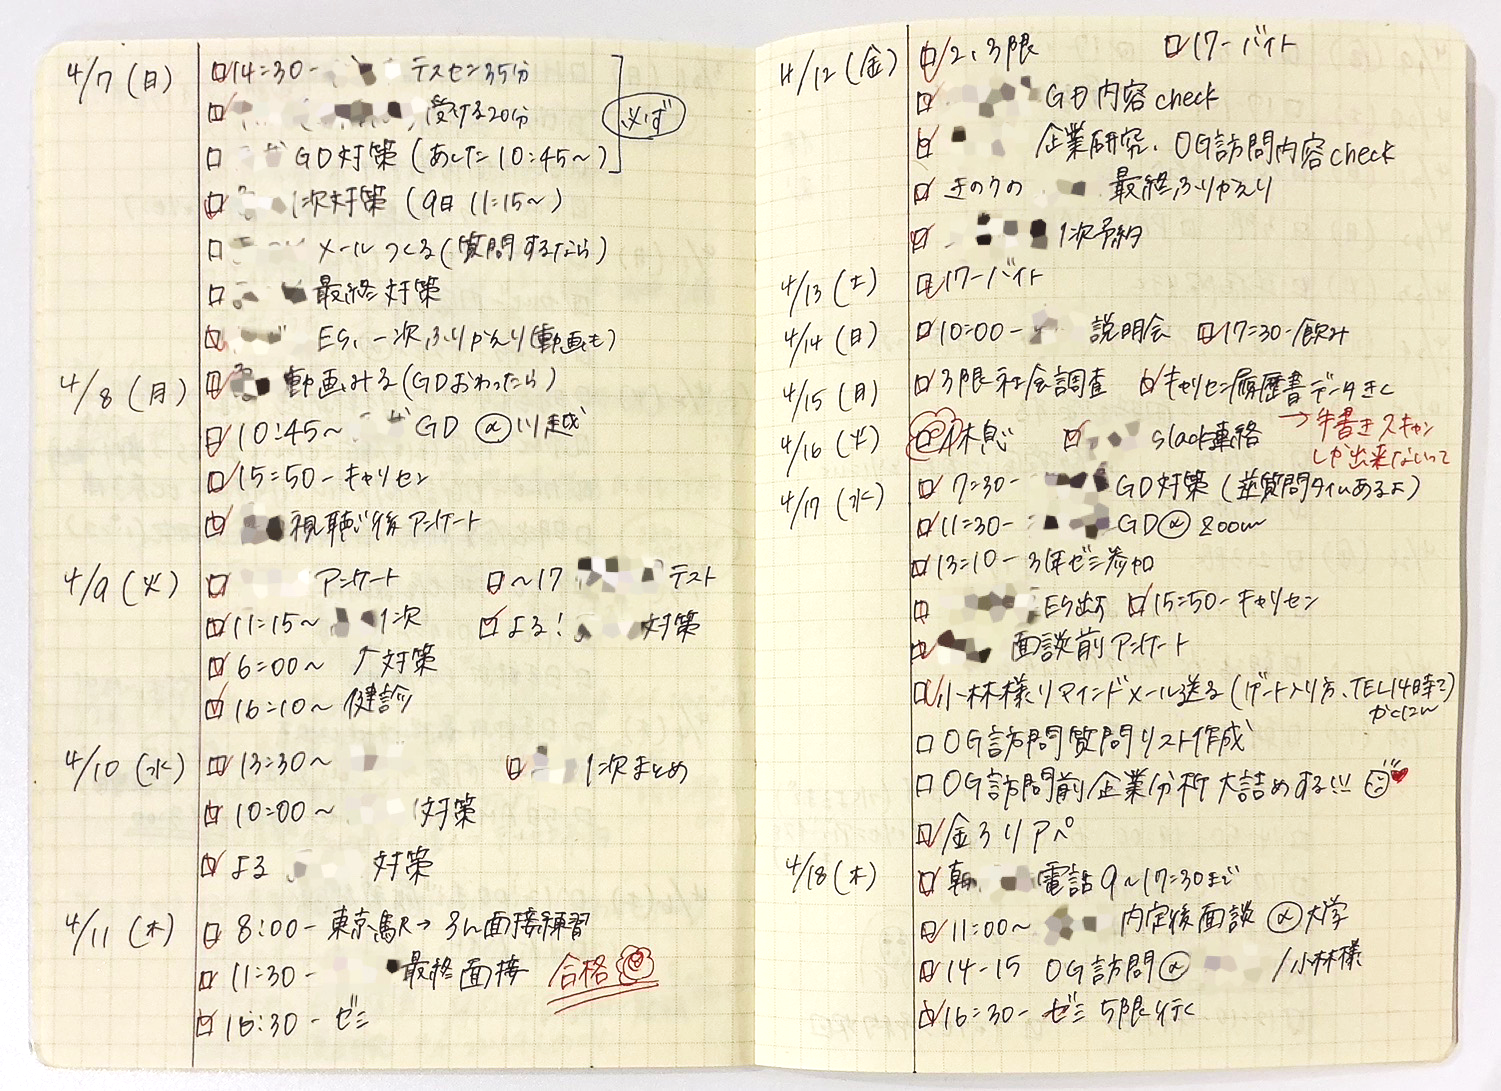 4/7 (日) 14:30- テスセン35分
受ける20分
必ず
GD対策 (あした10:45〜)
1次対策 (9日 11:15〜)
メールつくる (質問するなら)
最終対策
ES、一次ふりかえり(動画も)
4/8 (月) 動画みる (GDおわったら)
10:45〜 GD @川越
15:50- キャリセン
視聴後アンケート
4/9 (火) アンケート 〜17 テスト
11:15〜 1次 よる! 対策
6:00〜 ↑対策
16:10〜 健診
4/10 (水) 13:30〜 1次まとめ
10:00〜 対策
よる 対策
4/11 (木) 8:00- 東京駅→ 面接練習
11:30- 最終面接 合格
16:30- ゼミ
4/12 (金) 2、3限 17-バイト
GD内容check
企業研究、OG訪問内容check
きのうの 最終ふりかえり
1次予約
4/13 (土) 17-バイト
4/14 (日) 10:00- 説明会 17:30-飲み
4/15 (月) 3限社会調査 キャリセン履歴書データきく
→手書きスキャン
しか出来ないって
4/16 (火) 休息 slack連絡
4/17 (水) 7:30- GD対策 (逆質問タイムあるよ)
11:30- GD@zoom
13:10- 3年ゼミ参加
ES出す 15:50-キャリセン
面談前アンケート
小林様リマインドメール送る (ゲート入り方、TEL14時で)
かくにん
OG訪問質問リスト作成
OG訪問前企業分析大詰めする!!
金ろリアペ
4/18 (木) 朝 電話9〜17:30まで
11:00〜 内定後面談 @大学
14-15 OG訪問@ /小林様
16:30- ゼミ 5限行く